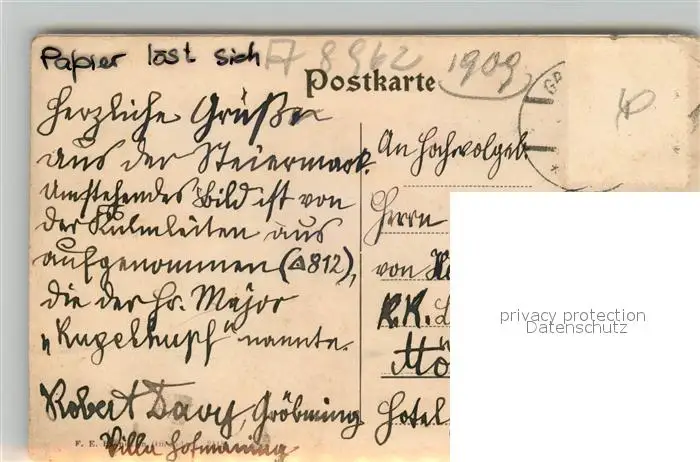 Papier löst sich
A 8962
1909
Postkarte
GR
Herzliche Grüße
aus der Steiermark.
Umstehendes Bild ist von
der Kulmleiten aus
aufgenommen (△812),
die der Hr. Major
„Kugelbusch" nannte.
Robert Davy, Gröbming
Villa Hofmaning
An Hochwolgeb.
Herrn
von
K.K.
Mö
Hotel
F. E.
privacy protection
Datenschutz